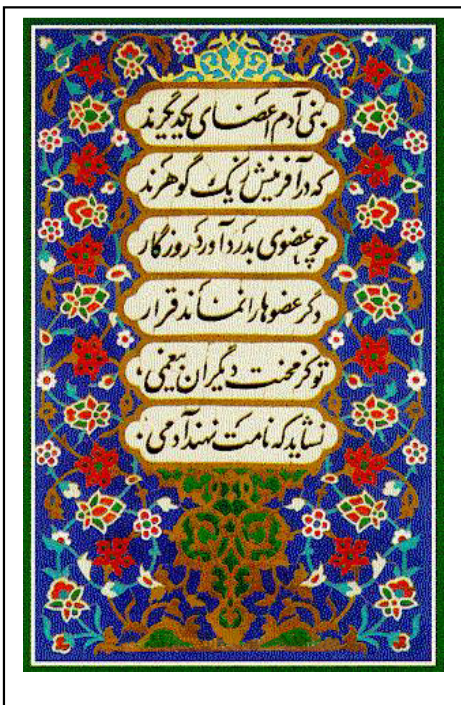 بنی آدم اعضای یکدیگرند
که در آفرینش ز یک گوهرند
چو عضوی بدرد آورد روزگار
دگر عضوها را نماند قرار
تو کز محنت دیگران بی‌غمی
نشاید که نامت نهند آدمی